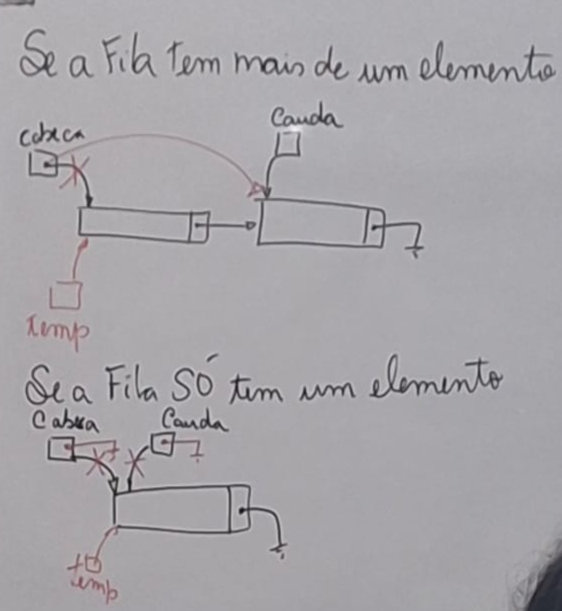 Se a Fila tem mais de um elemento
Cabeca
Cauda
temp
Se a Fila SÓ tem um elemento
Cabeca
Cauda
temp